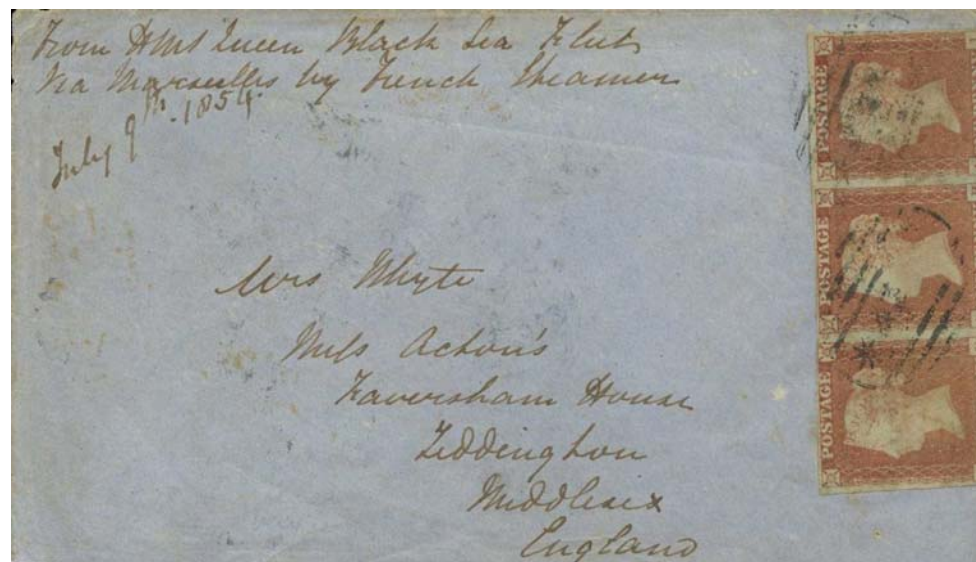 From HMS Queen Black Sea Fleet
Via Marseilles by French Steamer
July 9th. 1854.
Mrs Whyte
Miss Acton's
Faversham House
Teddington
Middlesex
England
POSTAGE
POSTAGE
POSTAGE